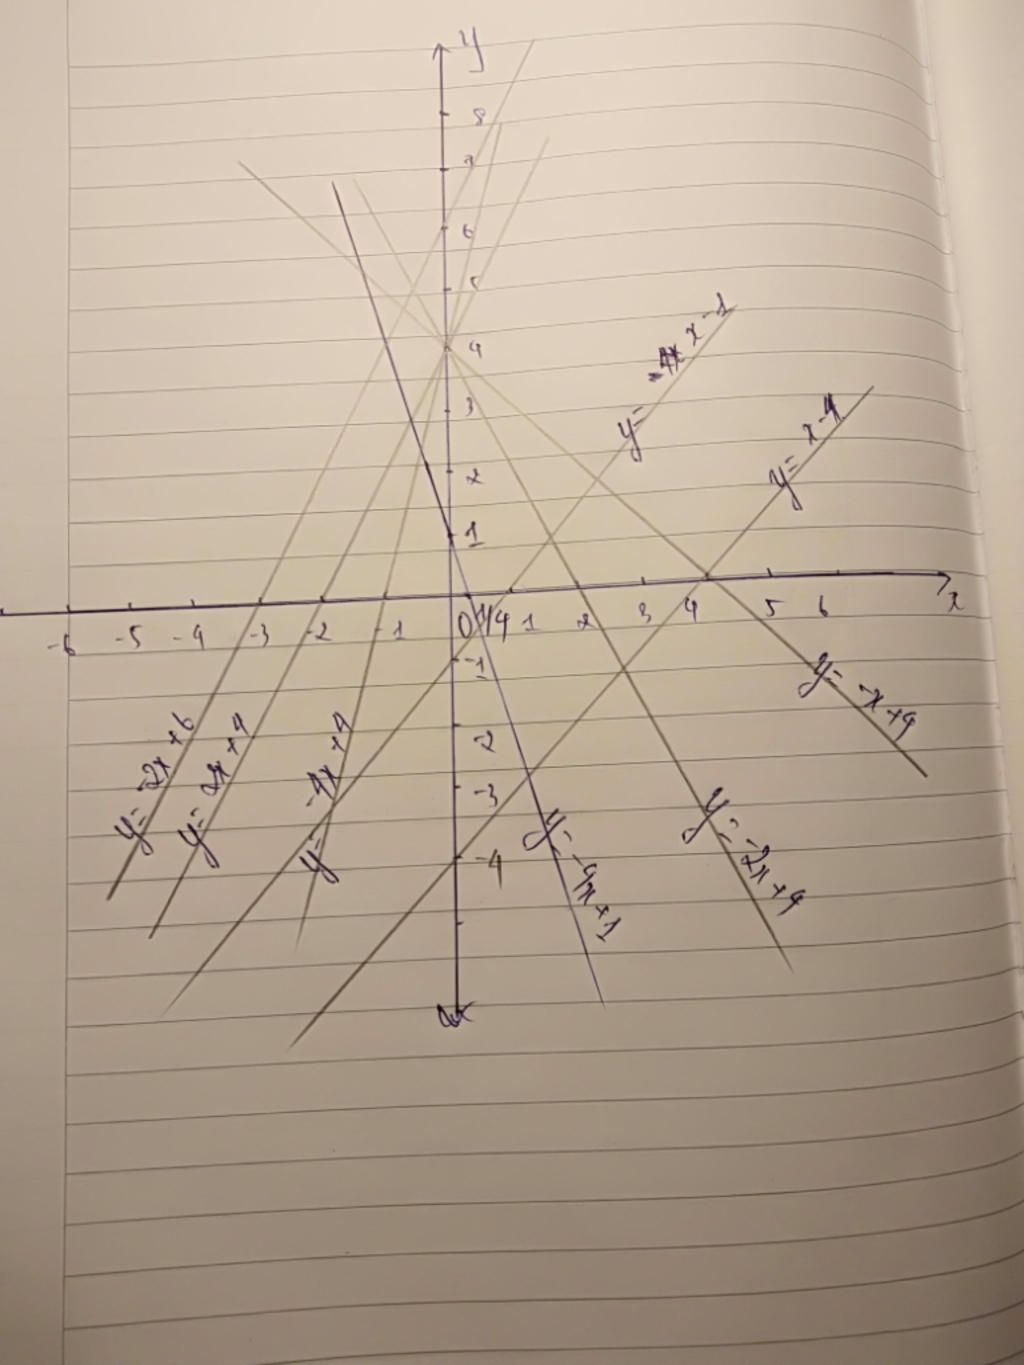 y
8
7
6
5
4
3
2
1
-6 -5 -4 -3 -2 -1 0 1/4 1 2 3 4 5 6 x
-1
-2
-3
-4
y= x-1
y= x-4
y= -x+4
y= -2x+6
y= 2x+4
y= -4x+4
y= -4x+1
y= -2x+4